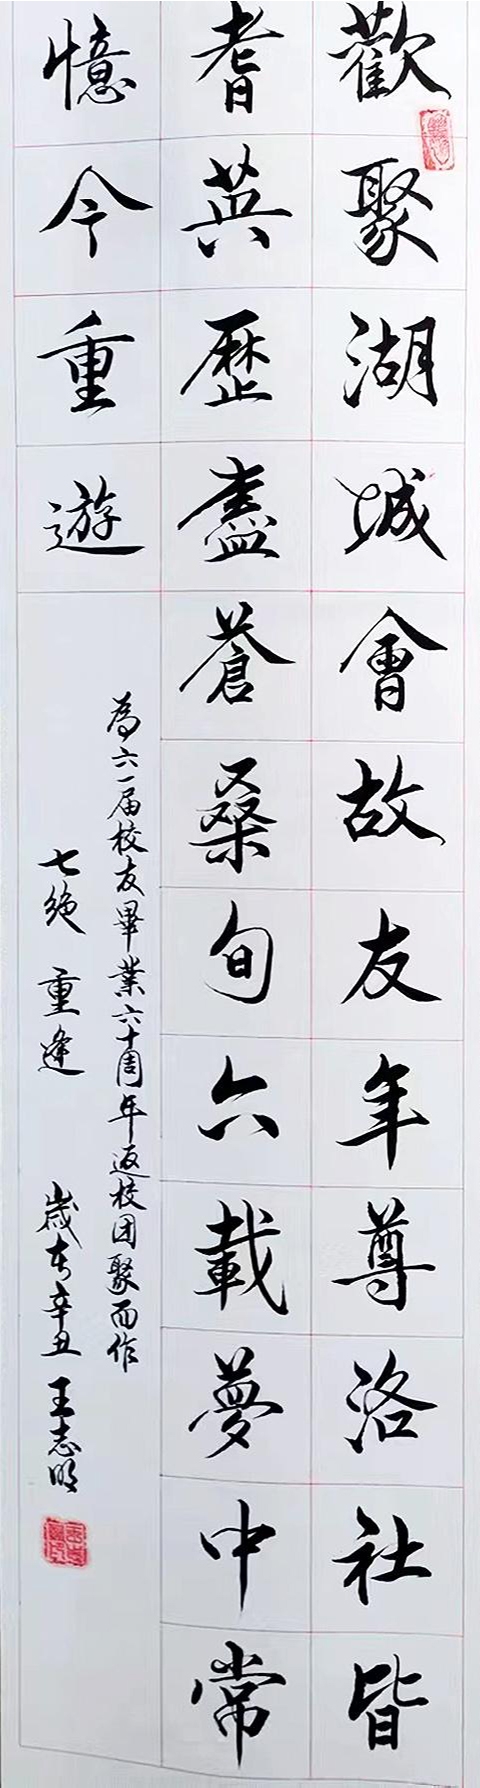 歡聚湖城會故友年尊洛社皆
耆英歷盡蒼桑旬六載夢中常
憶今重遊
為六一届校友畢業六十周年返校团聚而作
七绝 重逢 歲在辛丑 王志明